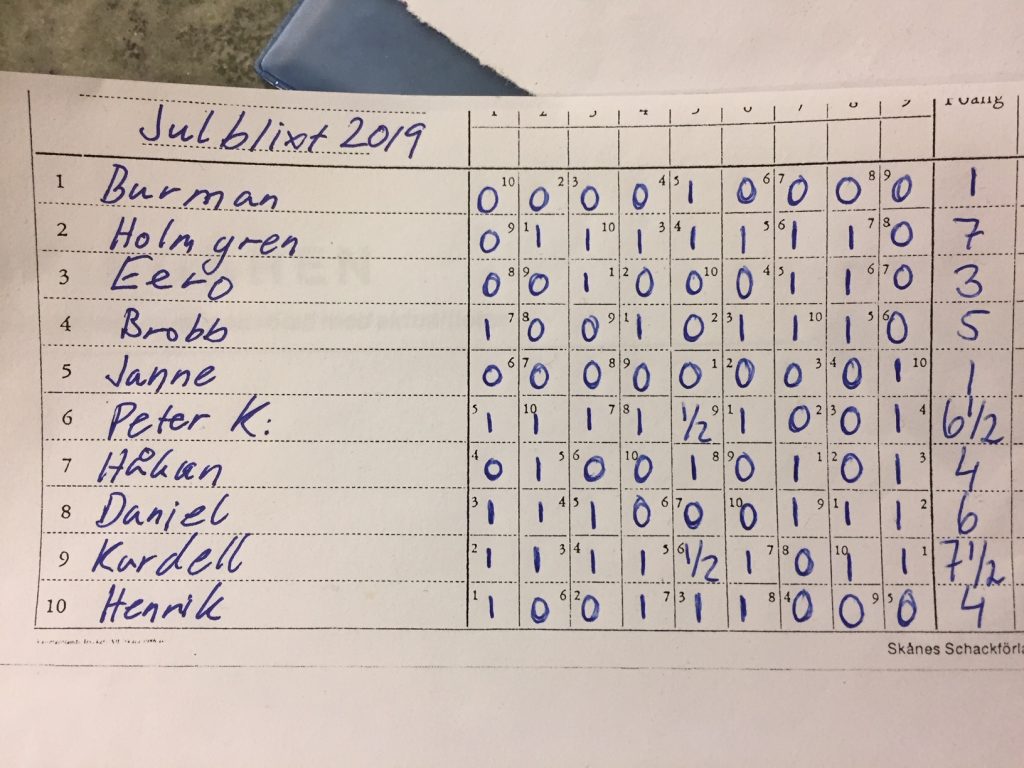 1 2 3 4 5 6 7 8 9 Poäng
Julblixt 2019
1 Burman 0 10 0 2 3 0 0 4 5 1 0 6 7 0 0 8 9 0 1
2 Holmgren 0 9 1 1 1 10 1 3 4 1 1 5 6 1 1 7 8 0 7
3 Eero 0 8 9 0 1 1 2 0 0 10 0 4 5 1 1 6 7 0 3
4 Brobb 1 7 8 0 0 9 1 1 0 2 3 1 1 10 1 5 6 0 5
5 Janne 0 6 7 0 0 8 9 0 0 1 2 0 0 3 4 0 1 10 1
6 Peter K: 5 1 10 1 1 7 8 1 1/2 9 1 1 0 2 3 0 1 4 6 1/2
7 Håkan 4 0 1 5 6 0 10 0 1 8 9 0 1 1 2 0 1 3 4
8 Daniel 3 1 1 4 5 1 0 6 7 0 10 0 1 9 1 1 1 2 6
9 Kardell 2 1 1 3 4 1 1 5 6 1/2 1 7 8 0 10 1 1 1 7 1/2
10 Henrik 1 1 0 6 2 0 1 7 3 1 1 8 4 0 0 9 5 0 4
Skånes Schackförla